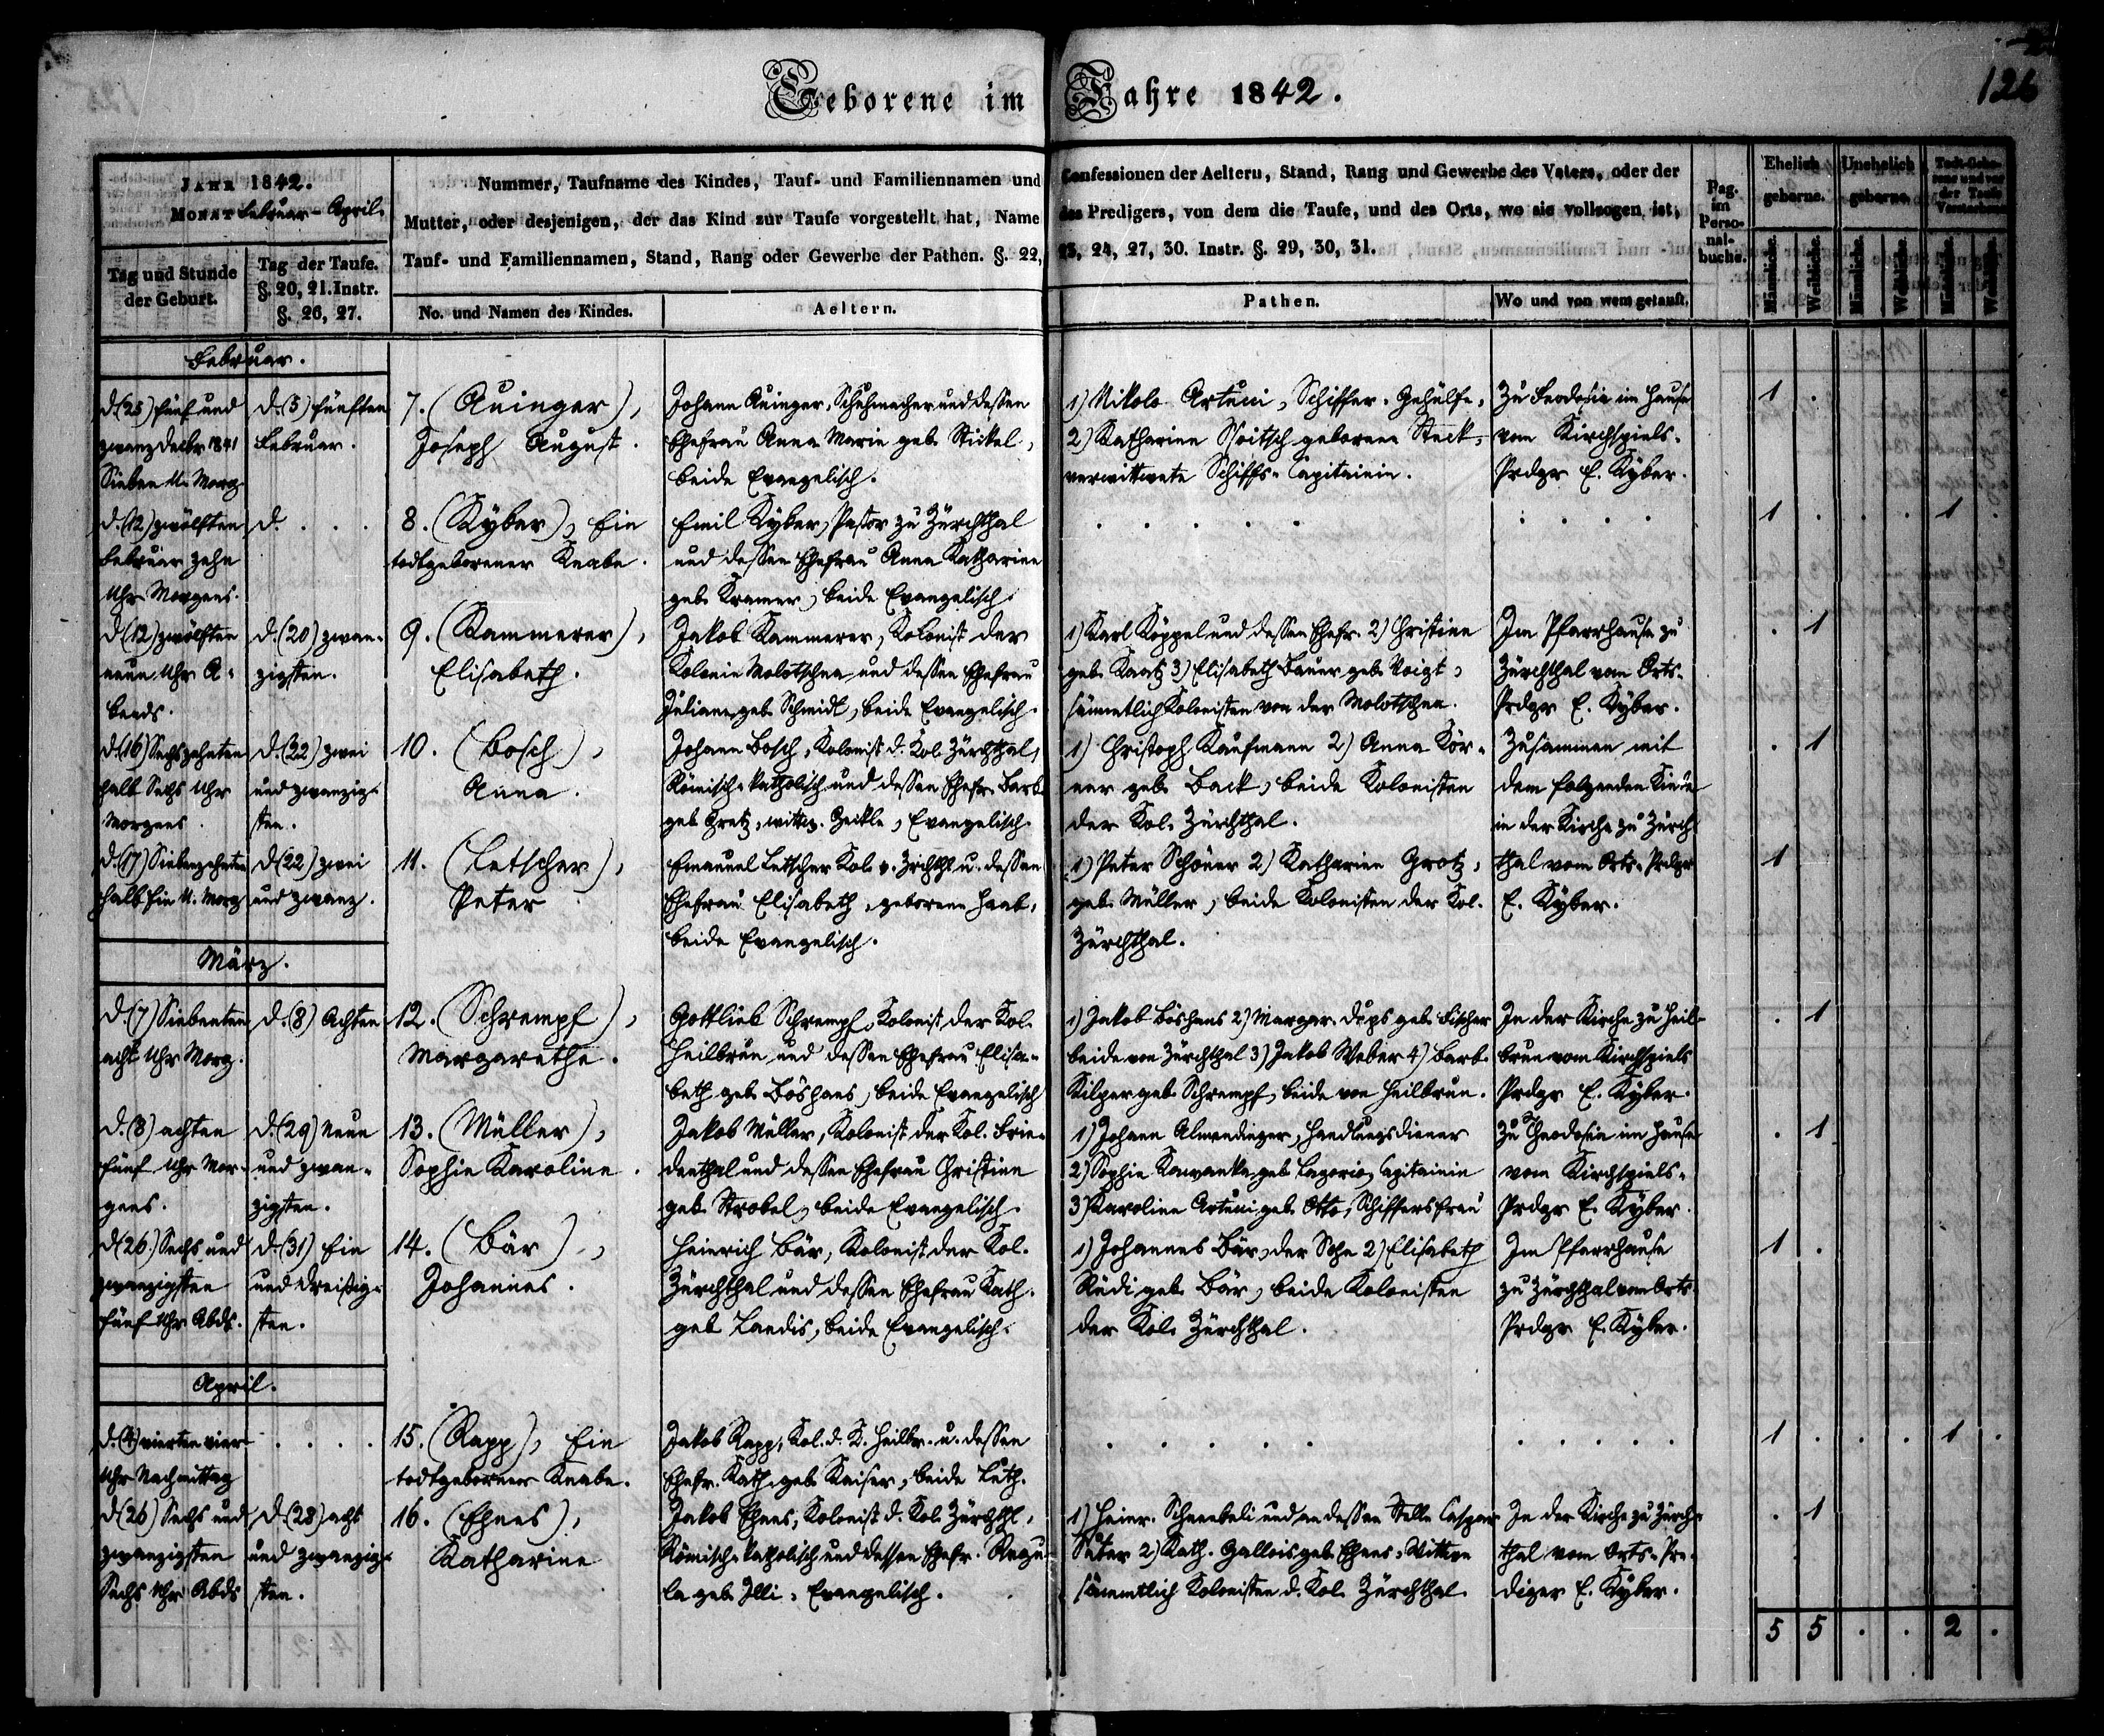 Geborene im Jahre 1842.
126
JAHR 1842.
MONAT Februar - April.
Tag und Stunde
der Geburt.
Tag der Taufe.
§. 20, 21. Instr.
§. 26, 27.
Nummer, Taufname des Kindes, Tauf- und Familiennamen und
Mutter, oder desjenigen, der das Kind zur Taufe vorgestellt hat, Name
Tauf- und Familiennamen, Stand, Rang oder Gewerbe der Pathen. §. 22,
No. und Namen des Kindes.
Aeltern.
Confessionen der Aeltern, Stand, Rang und Gewerbe des Vaters, oder der
des Predigers, von dem die Taufe, und des Orts, wo sie vollzogen ist,
23, 24, 27, 30. Instr. §. 29, 30, 31.
Pathen.
Wo und von wem getauft.
Pag.
im
Perso-
nal-
buche.
Ehelich
geborne.
Unehelich
geborne.
Todt-Gebo-
rene und vor
der Taufe
Verstorbene
Männliche.
Weibliche.
Männliche.
Weibliche.
Männliche.
Weibliche.
Februar.
d. (25) fünf und
zwanz Decbr 1841
Sieben U. Morg.
d. (5) fünften
Februar.
7. (Auinger),
Joseph August.
Johann Auinger, Schuhmacher und dessen
Ehefrau Anna Marie geb. Stickel,
beide Evangelisch.
1) Nikolo Artuci, Schiffer-Gehülfe,
2) Katharine geborene Steck,
verwittwete Schiffs-Capitainin.
Zu Feodosia im Hause
vom Kirchspiels-
Prdgr E. Kyber.
1 .
d. (12) zwölften
Februar zehn
Uhr Morgens.
d. . . .
8. (Kyber), Ein
todtgeborener Knabe.
Emil Kyber, Pastor zu Zürchthal
und dessen Ehefrau Anna Katharine
geb. Kramer, beide Evangelisch.
1 . . . 1 .
d. (12) zwölften
neun Uhr A-
bends.
d. (20) zwan-
zigsten.
9. (Kammerer),
Elisabeth.
Jakob Kammerer, Kolonist der
Kolonie Molotschna und dessen Ehefrau
Juliane geb. Schmidt, beide Evangelisch.
1) Karl Köppel und dessen Ehefr. 2) Christine
geb. Kaatz 3) Elisabeth Bauer geb. Voigt,
sämmtlich Kolonisten von der Molotschna.
Im Pfarrhause zu
Zürchthal vom Orts-
Prdgr E. Kyber.
. 1
d. (16) Sechszehnten
halb Sechs Uhr
Morgens.
d. (22) zwei
und zwanzig-
sten.
10. (Bosch),
Anna.
Johann Bosch, Kolonist d. Kol. Zürchthal,
Römisch-katholisch und dessen Ehefr. Barb.
geb. Gretz, wittw. Henkle, Evangelisch.
1) Christoph Kaufmann 2) Anna Kör-
ner geb. Back, beide Kolonisten
der Kol. Zürchthal.
Zusammen mit
dem folgenden Kinde
in der Kirche zu Zürch-
. 1
d. (17) Siebenzehnten
halb Ein U. Morg
d. (22) zwei
und zwanz.
11. (Letscher),
Peter
Emanuel Letscher Kol. v. Zrchthl u. dessen
Ehefrau Elisabeth, geborene Haab,
beide Evangelisch.
1) Peter Schöner 2) Katharine Grotz,
geb. Müller, beide Kolonisten der Kol.
Zürchthal.
thal vom Orts-Prdgr
E. Kyber.
1
März.
d. (7) Siebenten
acht Uhr Morg.
d. (8) Achten
12. (Schrempf),
Margarethe.
Gottlieb Schrempf, Kolonist der Kol.
Heilbrun und dessen Ehefrau Elisa-
beth geb. Böshans, beide Evangelisch
1) Jakob Böshans 2) Margar. Dups geb. Fischer
beide von Zürchthal 3) Jakob Weber 4) Barb.
Kilper geb. Schrempf, beide von Heilbrun.
In der Kirche zu Heil-
brun vom Kirchspiels
Prdgr E. Kyber.
. 1
d. (8) achten
fünf Uhr Mor-
gens.
d. (29) Neun
und zwan-
zigsten.
13. (Müller),
Sophie Karoline.
Jakob Müller, Kolonist der Kol. Frie-
denthal und dessen Ehefrau Christine
geb. Strobel, beide Evangelisch.
1) Johann Almendinger, Handlungsdiener
2) Sophie geb. Lagorio, Capitainin
3) Karoline Artuci geb. Otto, Schiffersfrau
Zu Theodosia im Hause
vom Kirchspiels-
Prdgr E. Kyber.
. 1
d. (26) Sechs und
zwanzigsten
fünf Uhr Abds.
d. (31) Ein
und dreißig-
sten.
14. (Bär),
Johannes.
Heinrich Bär, Kolonist der Kol.
Zürchthal und dessen Ehefrau Kath.
geb. Landis, beide Evangelisch.
1) Johannes Bär, der Sohn 2) Elisabeth
Rüdi geb. Bär, beide Kolonisten
der Kol. Zürchthal.
Im Pfarrhause
zu Zürchthal vom Orts-
Prdgr E. Kyber.
1 .
April.
d. (4) vierten vier
Uhr Nachmittag
. . . .
15. (Rapp), Ein
todtgeborner Knabe.
Jakob Rapp, Kol. d. K. Heilbr. u. dessen
Ehefr. Kath. geb. Kaiser, beide Luth.
1 . . . 1 .
d. (26) Sechs und
zwanzigsten
Sechs Uhr Abds
d. (28) acht
und zwanzig-
sten.
16. (Ehnes),
Katharine
Jakob Ehnes, Kolonist d. Kol. Zürchthl,
Römisch-katholisch und dessen Ehefr. Regu-
la geb. Illi, Evangelisch.
1) Heinr. Schneebeli und an dessen Stelle Caspar
Suter 2) Kath. Gallois geb. Ehnes, Wittwe
sämmtlich Kolonisten d. Kol. Zürchthal
In der Kirche zu Zürch-
thal vom Orts-Pre-
diger E. Kyber.
. 1
5 5 . . 2 .